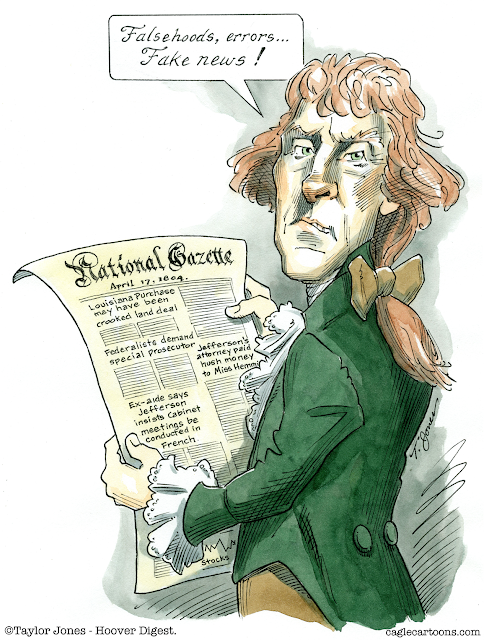 Falsehoods, errors...
Fake news!
National Gazette
April 17, 1804.
Louisiana Purchase
may have been
crooked land deal
Federalists demand
special prosecutor
Jefferson's
attorney paid
hush money
to Miss Hemm
Ex-aide says
Jefferson
insists Cabinet
meetings be
conducted in
French.
Stocks
T. Jones
©Taylor Jones - Hoover Digest.
caglecartoons.com